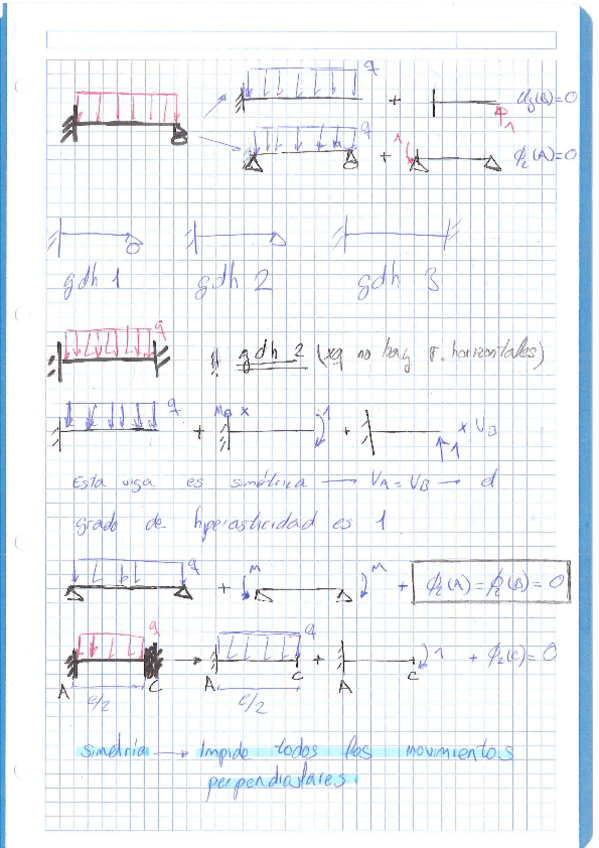 q
+ Uy(B)=0
1
q
1
+ ϕz(A)=0
B
gdh 1 gdh 2 gdh 3
q
gdh 2 (xq no hay r. horizontales)
q + MB x 1 + 1 x VB
Esta viga es simétrica → VA = VB → el
grado de hiperasticidad es 1.
q + M M + ϕz(A) = ϕz(B) = 0
q → q + 1 + ϕz(C) = 0
A C A C A C
ℓ/2 ℓ/2
simetría → Impide todos los movimientos
perpendiculares.